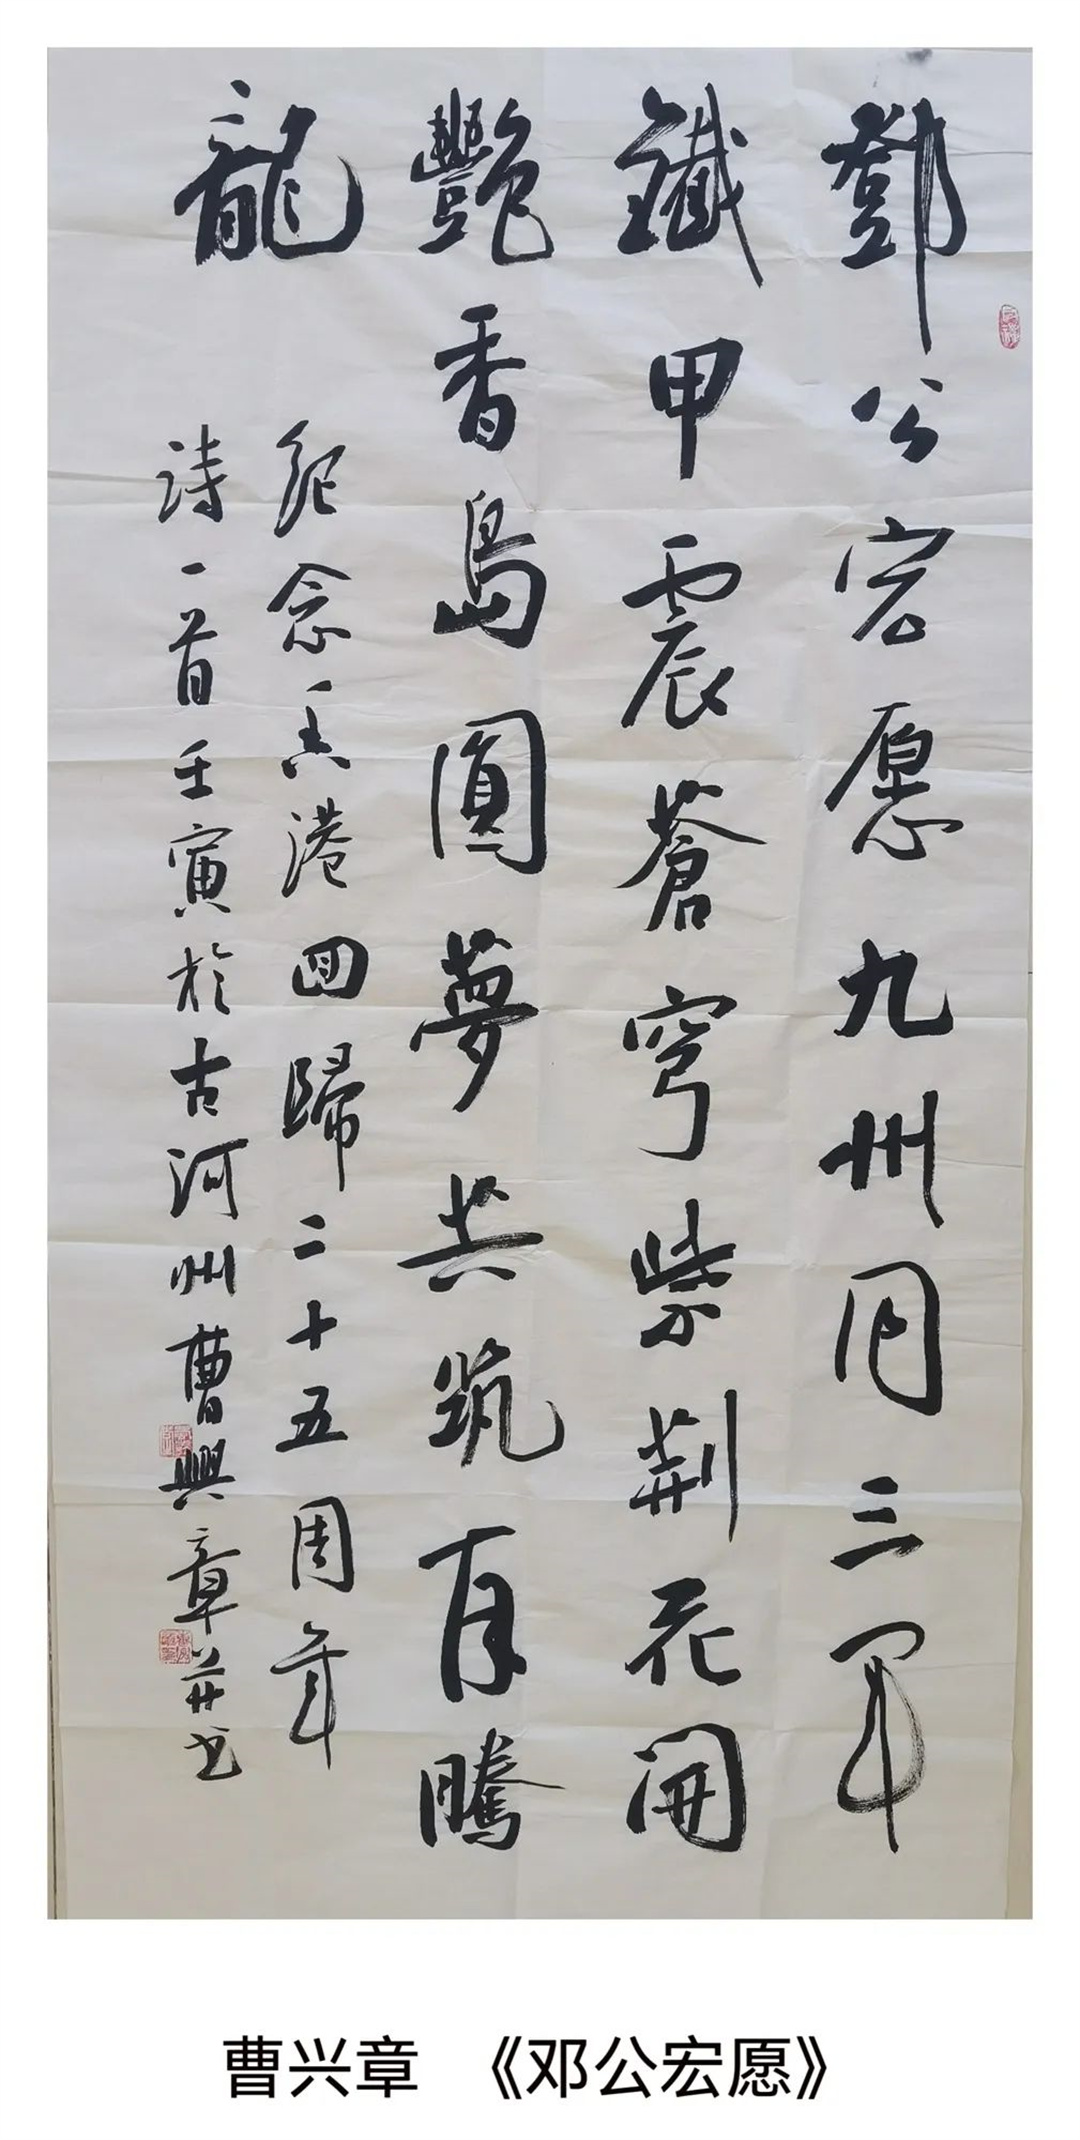 鄧公宏愿九州同三軍
鐵甲震蒼穹紫荊花開
艷香島圓夢共筑騰
龍
紀念香港回歸二十五周年
詩一首壬寅於古河州曹興章并书
曹兴章 《邓公宏愿》